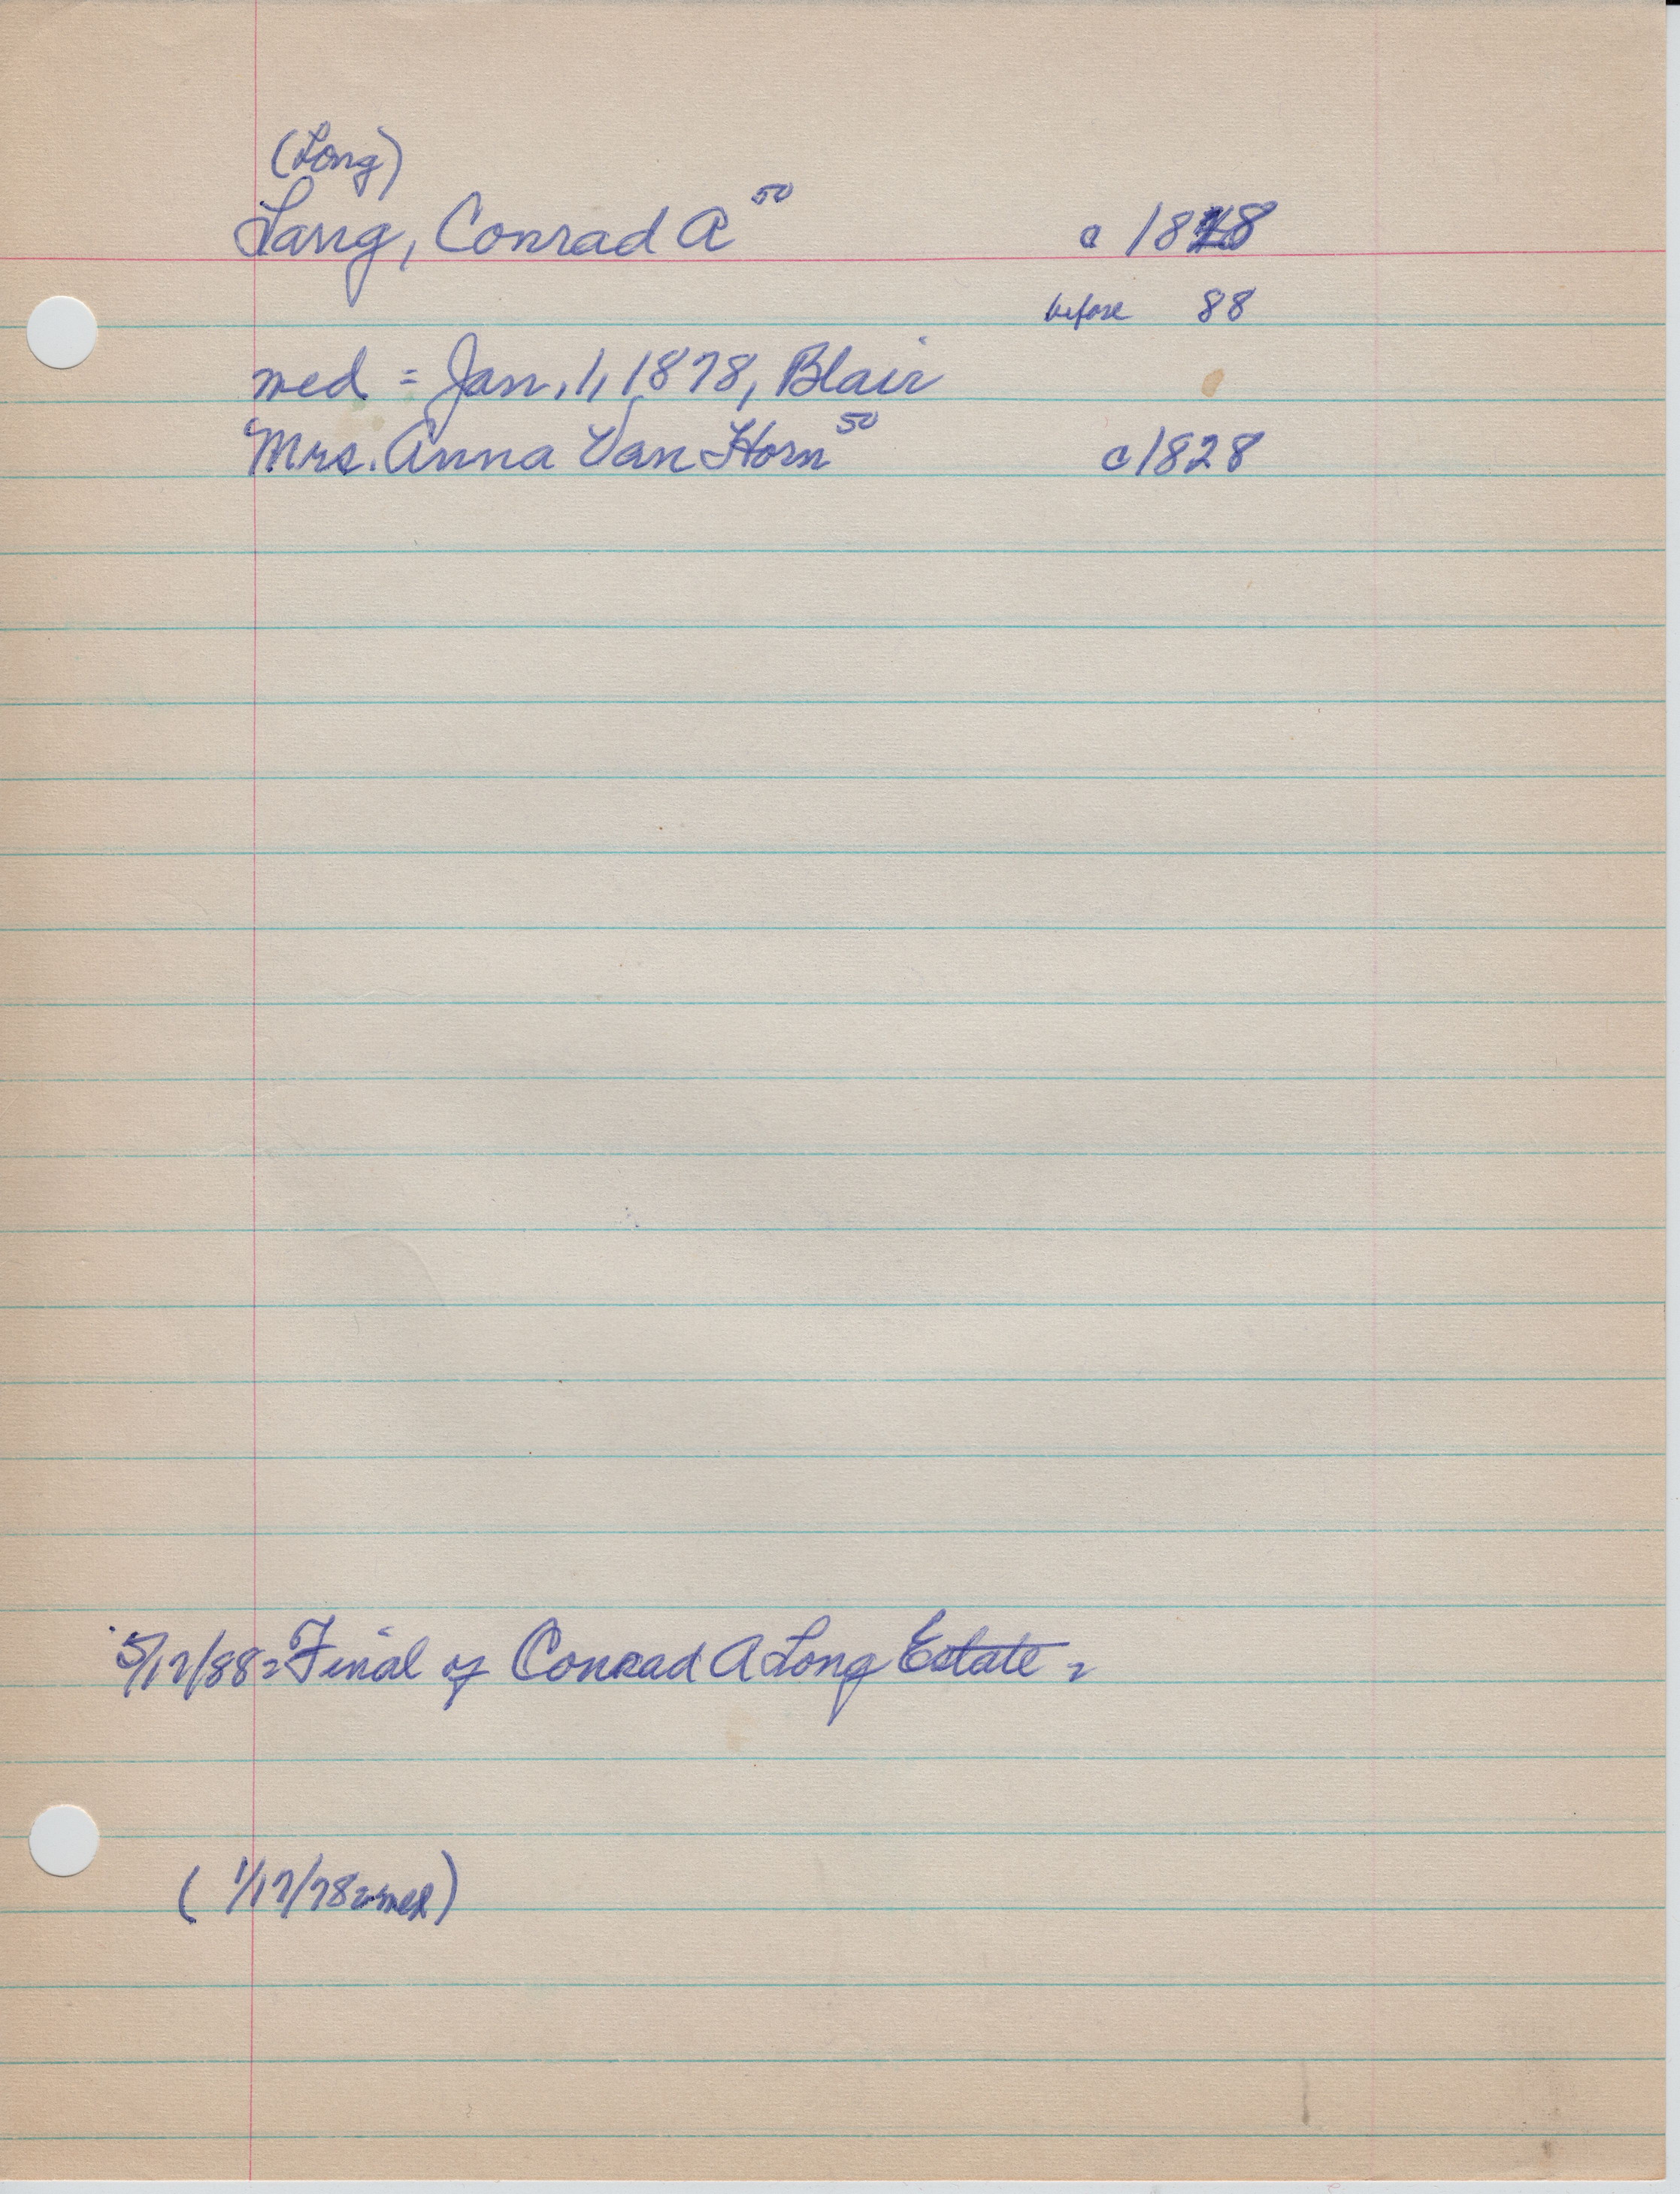 (Long)
Lang, Conrad A 50 c 1828
before 88
med = Jan. 1, 1878, Blair
Mrs. Anna Van Horn 50 c 1828
5/17/88 = Final of Conrad A Long Estate =
(1/17/78 = med)